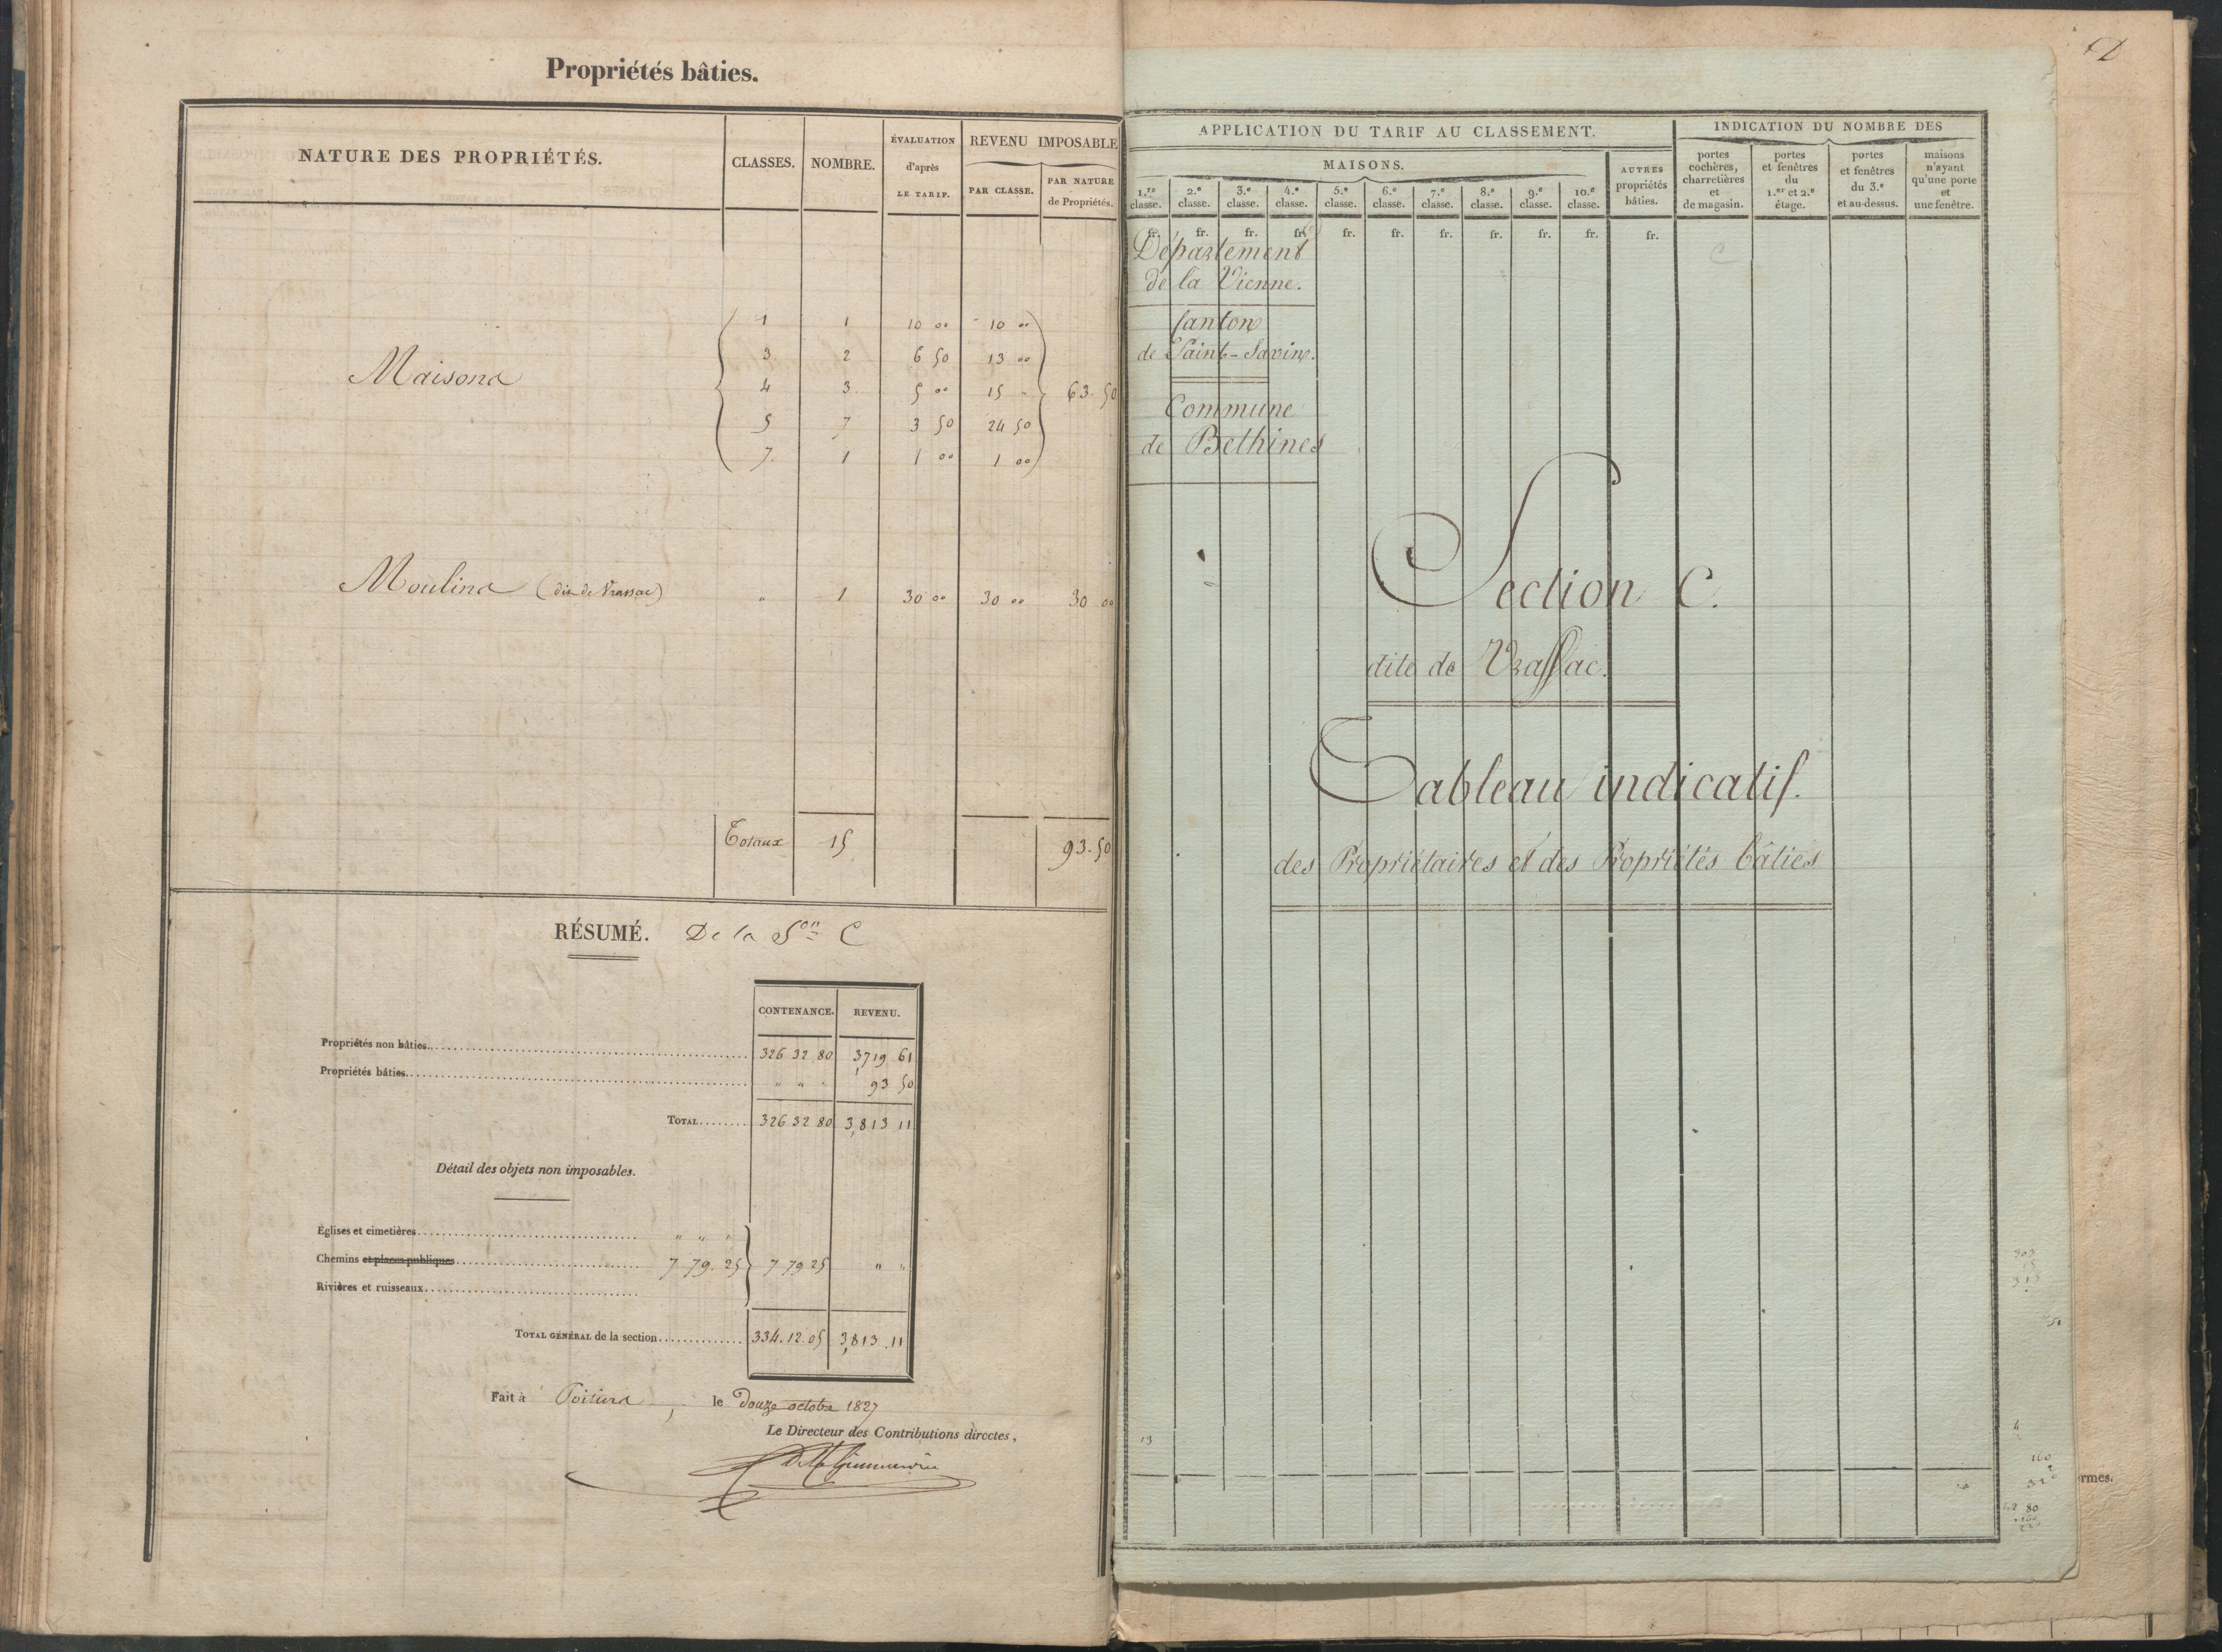 Propriétés bâties.
NATURE DES PROPRIÉTÉS. CLASSES. NOMBRE. ÉVALUATION d'après LE TARIF. REVENU IMPOSABLE
PAR CLASSE. PAR NATURE de Propriétés.
Maisons
1 1 10 00 10 00
3 2 6 50 13 00
4 3 5 00 15 " 63.50
5 7 3 50 24 50
7 1 1 00 1 00
Moulins (dit de Vrassac) " 1 30 00 30 00 30 00
Totaux 15 93.50
RÉSUMÉ. De la Son C
CONTENANCE. REVENU.
Propriétés non bâties 326 32 80 3,719 61
Propriétés bâties " " " 93 50
TOTAL 326 32 80 3,813 11
Détail des objets non imposables.
Églises et cimetières " " "
Chemins et places publiques 7.79.25 7 79 25 " "
Rivières et ruisseaux
TOTAL GÉNÉRAL de la section 334.12.05 3,813.11
Fait à Poitiers, le Douze octobre 1827
Le Directeur des Contributions directes,
APPLICATION DU TARIF AU CLASSEMENT.
MAISONS.
1.re classe. 2.e classe. 3.e classe. 4.e classe. 5.e classe. 6.e classe. 7.e classe. 8.e classe. 9.e classe. 10.e classe.
AUTRES propriétés bâties.
INDICATION DU NOMBRE DES
portes cochères, charretières et de magasin.
portes et fenêtres du 1.er et 2.e étage.
portes et fenêtres du 3.e et au-dessus.
maisons n'ayant qu'une porte et une fenêtre.
fr. fr. fr. fr. fr. fr. fr. fr. fr. fr. fr.
C
Département
de la Vienne.
Canton
de Saint-Savin.
Commune
de Bethines
Section C.
dite de Vrassac.
Tableau indicatif.
des Propriétaires et des Propriétés bâties
13
4
160
80
rmes.